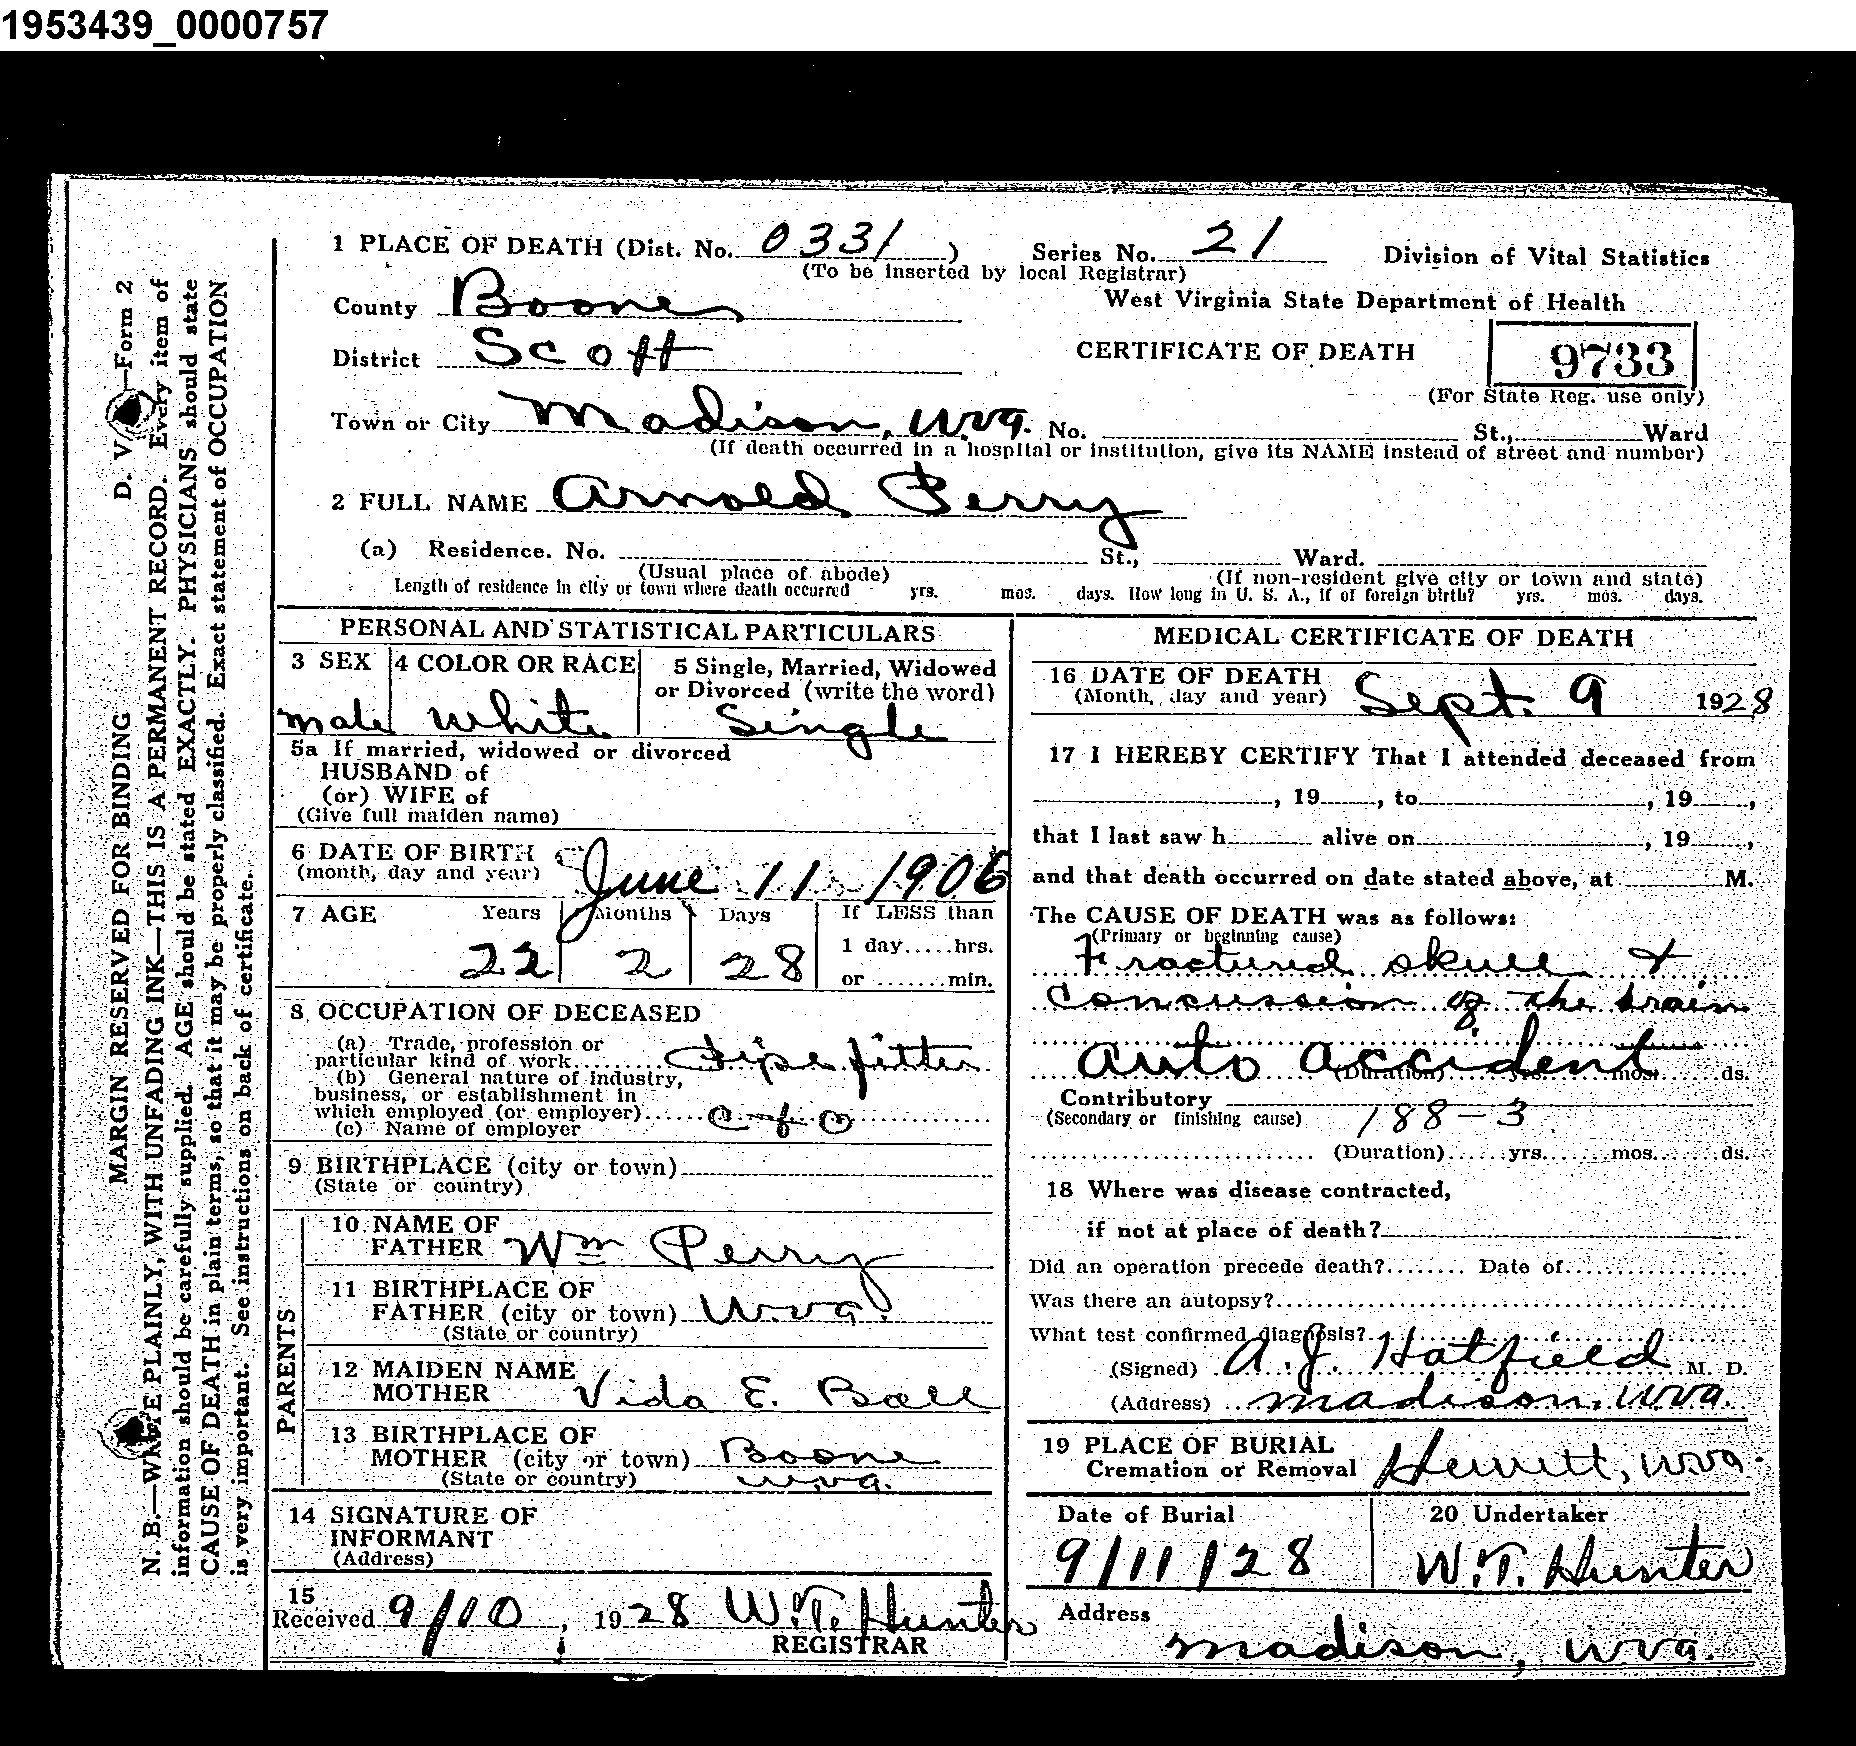 1953439_0000757
1 PLACE OF DEATH (Dist. No. 0331 ) Series No. 21 Division of Vital Statistics
(To be inserted by local Registrar)
County Boone West Virginia State Department of Health
District Scott CERTIFICATE OF DEATH 9733
(For State Reg. use only)
Town or City Madison, W.Va. No. St., Ward
(If death occurred in a hospital or institution, give its NAME instead of street and number)
2 FULL NAME Arnold Perry
(a) Residence. No. St., Ward.
(Usual place of abode) (If non-resident give city or town and state)
Length of residence in city or town where death occurred yrs. mos. days. How long in U. S. A., if of foreign birth? yrs. mos. days.
PERSONAL AND STATISTICAL PARTICULARS
3 SEX 4 COLOR OR RACE 5 Single, Married, Widowed
or Divorced (write the word)
male White Single
5a If married, widowed or divorced
HUSBAND of
(or) WIFE of
(Give full maiden name)
6 DATE OF BIRTH
(month, day and year) June 11 1906
7 AGE Years Months Days If LESS than
1 day.....hrs.
22 2 28
or .......min.
8 OCCUPATION OF DECEASED
(a) Trade, profession or
particular kind of work........ Pipe fitter
(b) General nature of industry,
business, or establishment in
which employed (or employer)...... C & O
(c) Name of employer
9 BIRTHPLACE (city or town)
(State or country)
PARENTS
10 NAME OF
FATHER Wm Perry
11 BIRTHPLACE OF
FATHER (city or town) W.Va.
(State or country)
12 MAIDEN NAME
MOTHER Vida E. Ball
13 BIRTHPLACE OF
MOTHER (city or town) Boone
(State or country) W.Va.
14 SIGNATURE OF
INFORMANT
(Address)
15
Received 9/10, 1928 W.T. Hunter
REGISTRAR
MEDICAL CERTIFICATE OF DEATH
16 DATE OF DEATH
(Month, day and year) Sept. 9 1928
17 I HEREBY CERTIFY That I attended deceased from
, 19 , to , 19 ,
that I last saw h alive on , 19 ,
and that death occurred on date stated above, at M.
The CAUSE OF DEATH was as follows:
(Primary or beginning cause)
Fractured skull &
Concussion of the brain
Auto accident
(Duration) yrs. mos. ds.
Contributory
(Secondary or finishing cause) 188-3
(Duration)......yrs.......mos.......ds.
18 Where was disease contracted,
if not at place of death?
Did an operation precede death?........ Date of
Was there an autopsy?
What test confirmed diagnosis?
(Signed) A. J. Hatfield M. D.
(Address) Madison, W.Va.
19 PLACE OF BURIAL
Cremation or Removal Hewitt, W.Va.
Date of Burial 20 Undertaker
9/11/28 W.T. Hunter
Address
Madison, W.Va.
D. V. —Form 2
MARGIN RESERVED FOR BINDING
N. B.—WRITE PLAINLY, WITH UNFADING INK—THIS IS A PERMANENT RECORD. Every item of
information should be carefully supplied. AGE should be stated EXACTLY. PHYSICIANS should state
CAUSE OF DEATH in plain terms, so that it may be properly classified. Exact statement of OCCUPATION
is very important. See instructions on back of certificate.